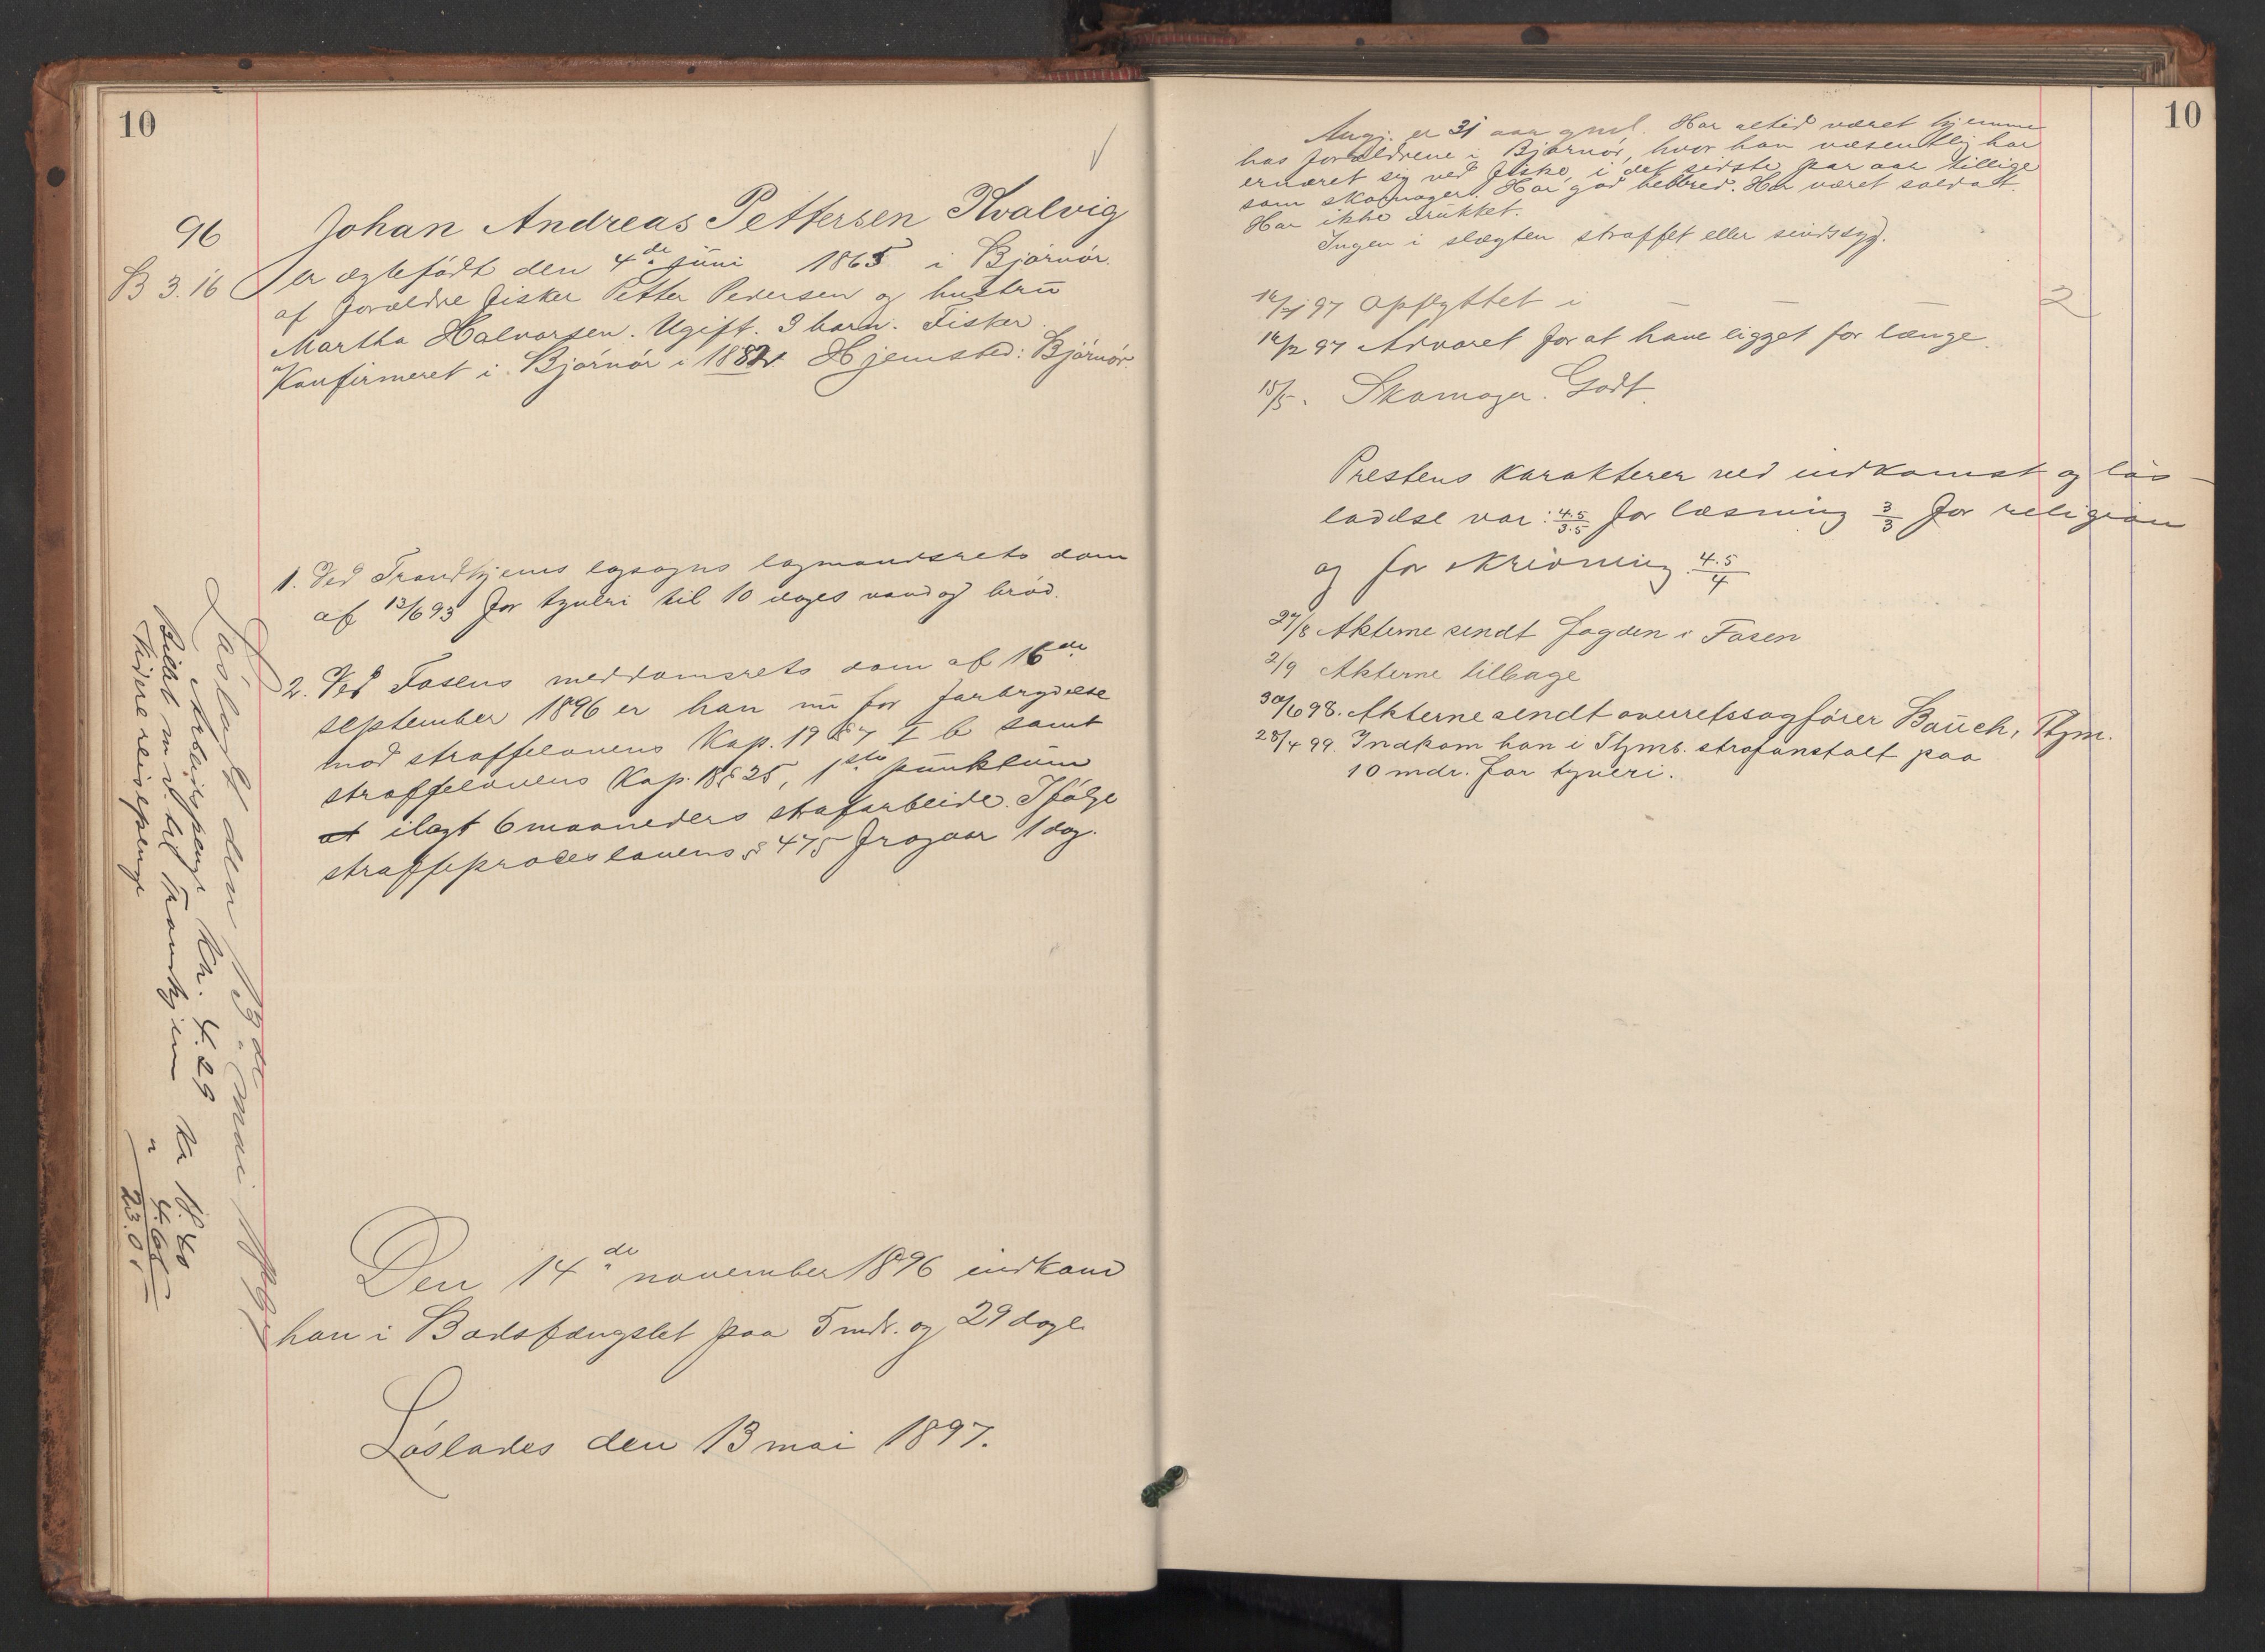 10
96
B 3.16
Johan Andreas Pettersen Kvalvig
er ægtefødt den 4de juni 1865 i Bjørnør
af forældre fisker Petter Pedersen og hustru
Martha Halvorsen. Ugift. 3 barn. Fisker.
Konfirmeret i Bjørnør i 1882. Hjemsted: Bjørnør.
1. Ved Trondhjems lagsogns lagmandsrets dom
af 13/6 93 for tyveri til 10 dages vand og brød.
2. Ved Fosens meddomsrets dom af 16de
september 1896 er han nu for forbrydelse
mod straffelovens Kap. 19 § 7 I b samt
straffelovens Kap. 18 § 25, 1ste punktum
ilagt 6 maaneders strafarbeide. Ifølge
straffeproceslovens § 475 fragaar 1 dag.
Den 14de november 1896 indkom
han i Bodsfængslet paa 5 mdr. og 29 dage
Løslades den 13 mai 1897.
Løsladt den 13de mai 1897
Arbeidspenge Kr. 4.29
Billet m.v. til Trondhjem Kr 18.40
Videre reisepenge " 4.65
23.05
10
Angj. er 31 aar gml. Har altid været hjemme
hos forældrene i Bjørnør, hvor han væsentlig har
ernæret sig ved fiske, i det sidste par aar tillige
som skomager. Har god helbred. Har været soldat.
Har ikke drukket.
Ingen i slægten straffet eller sindssyg.
14/1 97 Opflyttet i — — — 2
14/2 97 Advaret for at have ligget for længe.
15/5. Skomager. Godt.
Prestens karakterer ved indkomst og løs-
ladelse var: 4.5/3.5 for læsning 3/3 for religion
og for skrivning 4.5/4
27/8 Akterne sendt fogden i Fosen
2/9 Akterne tilbage
30/6 98. Akterne sendt overretssagfører Bauck, Thjm.
28/4 99. Indkom han i Thjmb. strafanstalt paa
10 mdr. for tyveri.